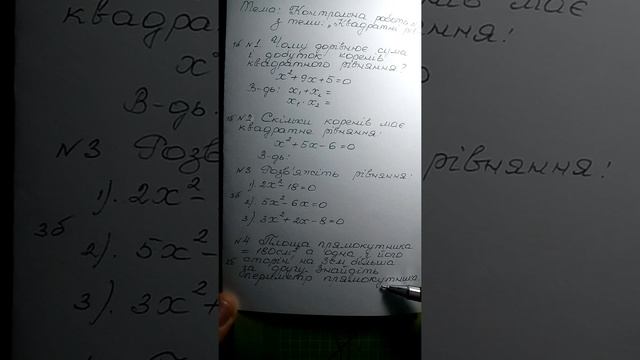 Тема: Контрольна робота
з теми: „Квадратні рі
1б №1 Чому дорівнює сума
і добуток коренів
квадратного рівняння?
x²+9x+5=0
В-дь: x₁+x₂=
x₁·x₂=
№2 Скільки коренів має
квадратне рівняння:
x²+5x-6=0
В-дь:
№3 Розв'яжіть рівняння:
1). 2x²-18=0
3б
2). 5x²-6x=0
3) 3x²+2x-8=0
№4 Площа прямокутника
=180см² а одна з його
сторін на 3см більша
за другу. Знайдіть
периметр прямокутника